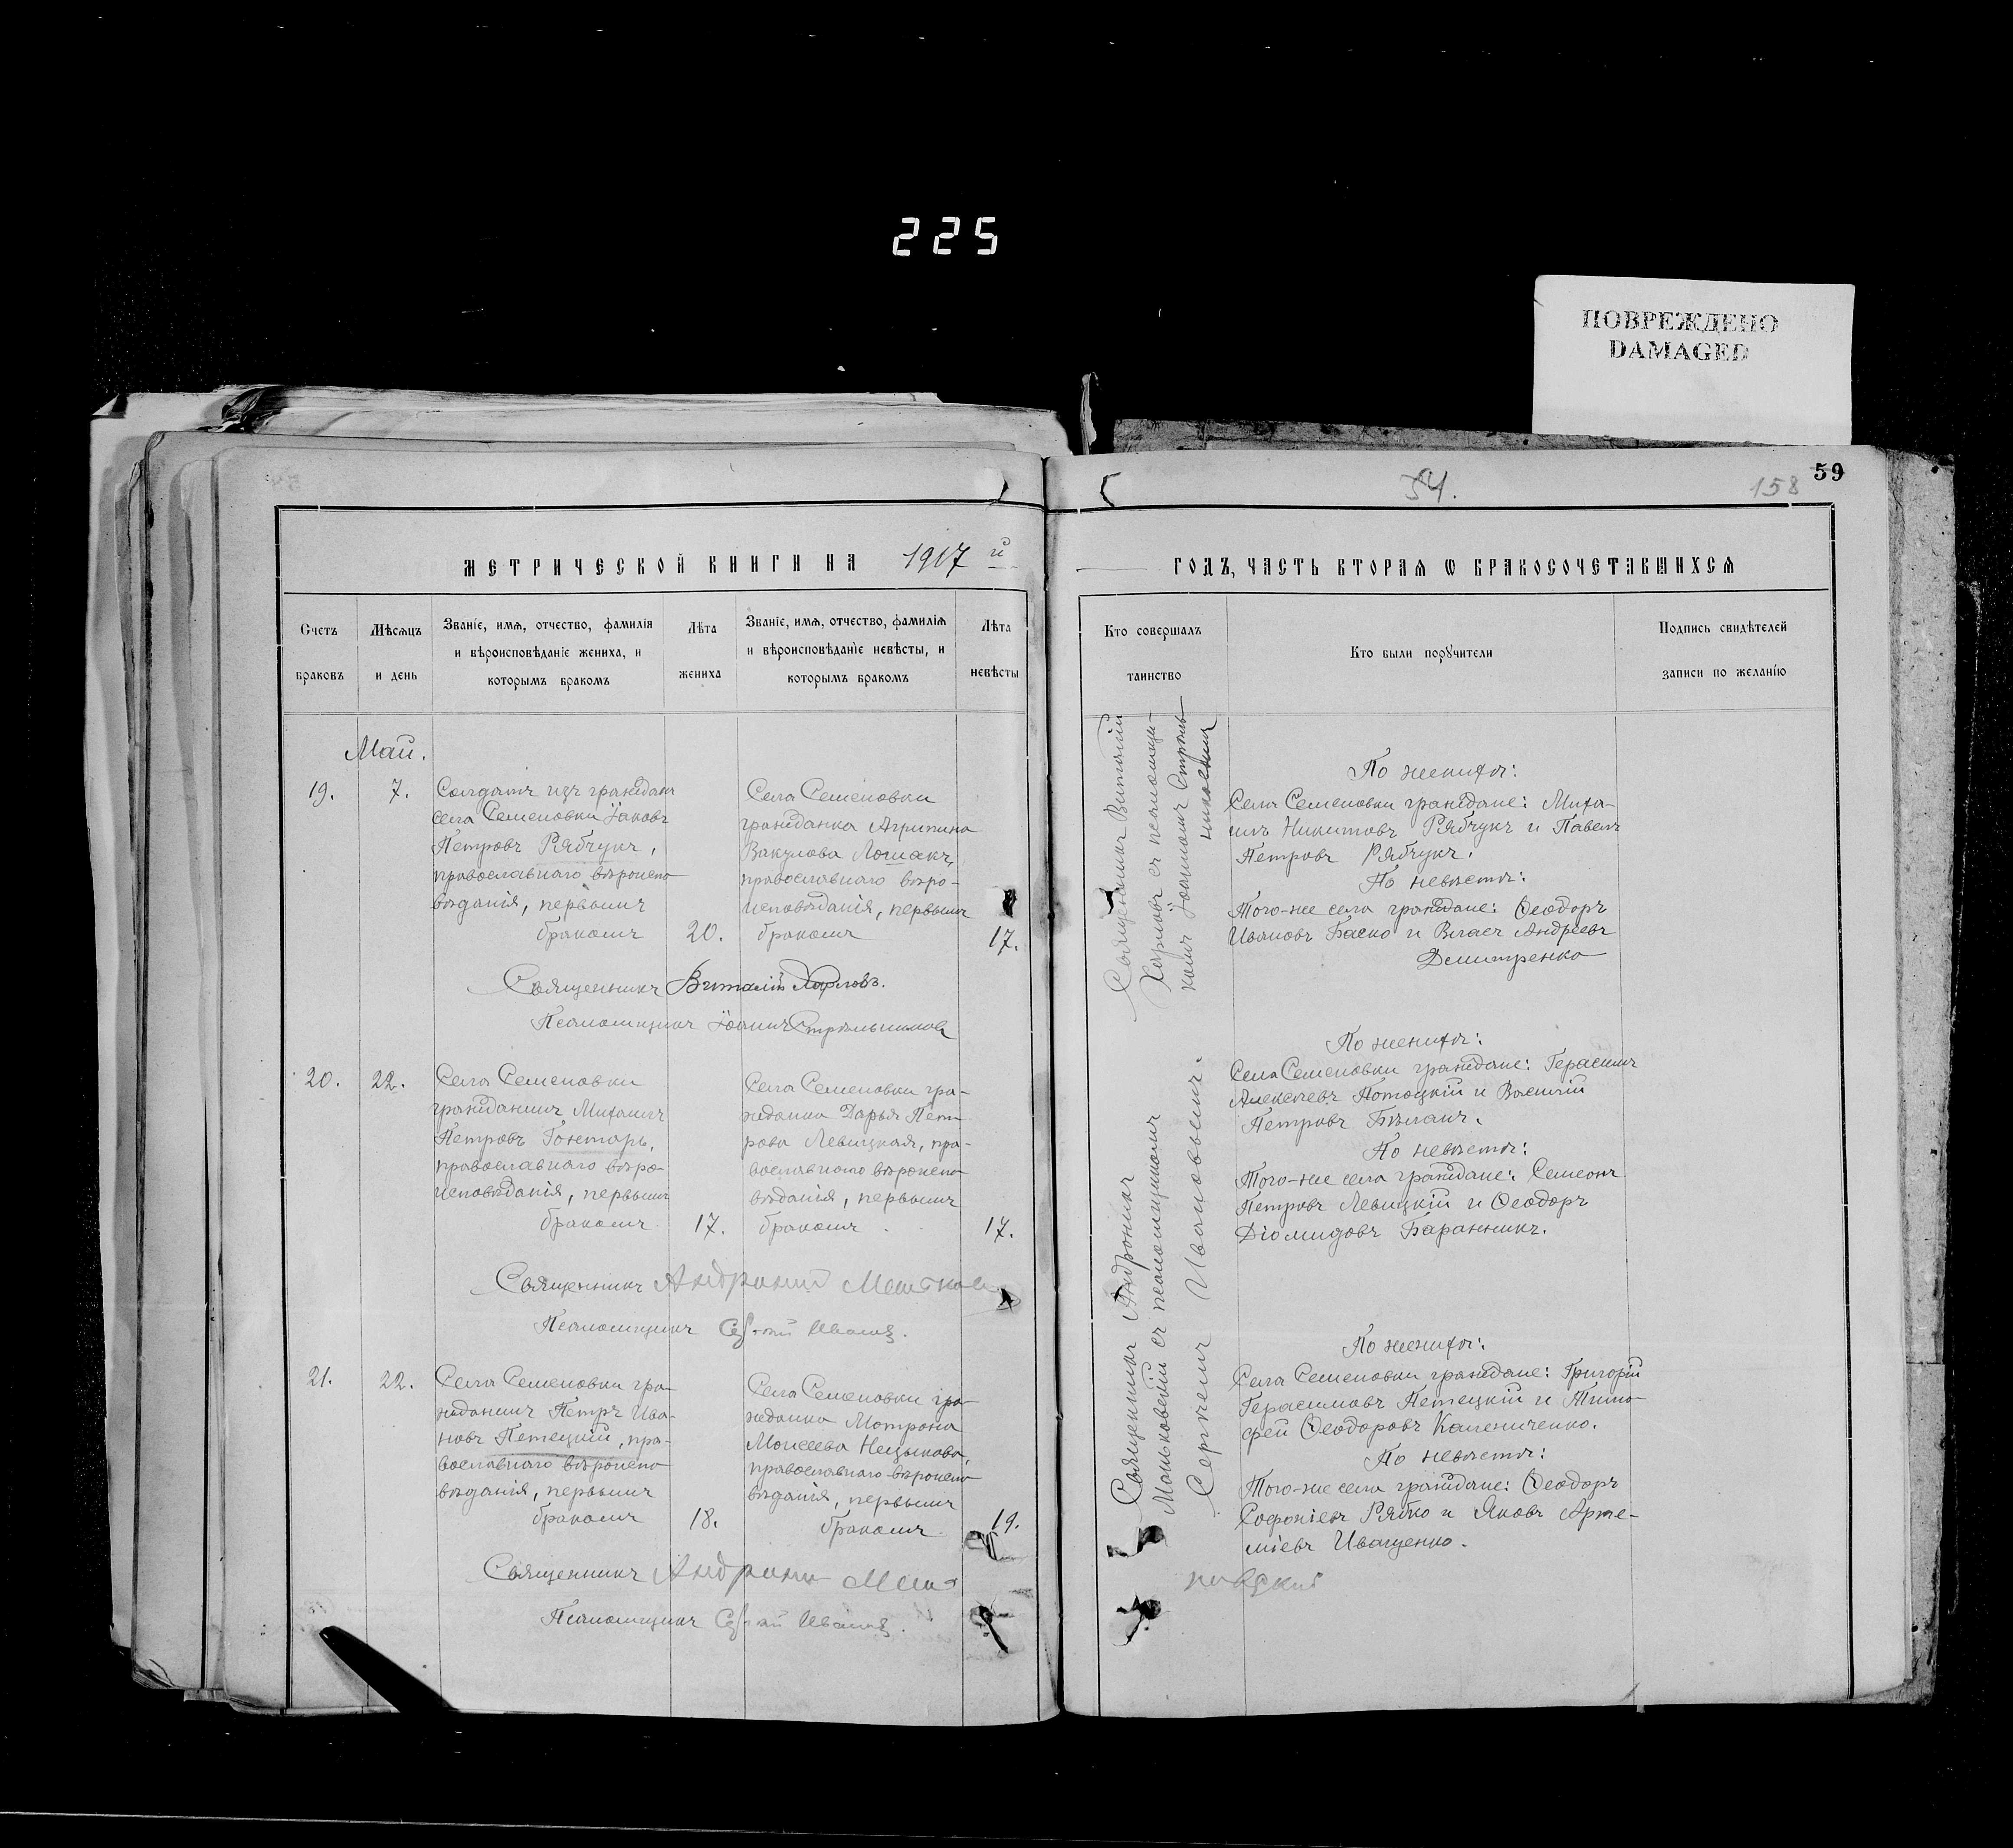 225
ПОВРЕЖДЕНО
DAMAGED
59
54.
158
МЕТРИЧЕСКОЙ КНИГИ НА 1917 й
ГОДЪ, ЧАСТЬ ВТОРАЯ Ѡ БРАКОСОЧЕТАВШИХСЯ
Счетъ
браковъ
Мѣсяцъ
и день
Званіе, имя, отчество, фамилія
и вѣроисповѣданіе жениха, и
которымъ бракомъ
Лѣта
жениха
Званіе, имя, отчество, фамилія
и вѣроисповѣданіе невѣсты, и
которымъ бракомъ
Лѣта
невѣсты
Кто совершалъ
таинство
Кто были порꙋчители
Подпись свидѣтелей
записи по желанію
Май.
19.
7.
Солдатъ изъ гражданъ
села Семеновки Іаковъ
Петровъ Рябчукъ,
православнаго вѣроиспо-
вѣданія, первымъ
бракомъ
20.
Села Семеновки
гражданка Агрипина
Вакулова Лошакъ,
православнаго вѣро-
исповѣданія, первымъ
бракомъ
17.
Священникъ Виталій Харловъ.
Псаломщикъ Іоаннъ Стрѣльниковъ
Священникъ Виталій
Харловъ съ псаломщи-
комъ Іоанномъ Стрѣль-
никовымъ
По женихѣ:
Села Семеновки граждане: Миха-
илъ Никитовъ Рябчукъ и Павелъ
Петровъ Рябчукъ.
По невѣстѣ:
Того-же села граждане: Ѳеодоръ
Ивановъ Баско и Власъ Андреевъ
Дмитренко
20.
22.
Села Семеновки
гражданинъ Михаилъ
Петровъ Гонтарь,
православнаго вѣро-
исповѣданія, первымъ
бракомъ
17.
Села Семеновки гра-
жданка Дарья Пет-
рова Левицкая, пра-
вославнаго вѣроиспо-
вѣданія, первымъ
бракомъ
17.
Священникъ
Псаломщикъ
По женихѣ:
Села Семеновки граждане: Герасимъ
Алексѣевъ Потоцкій и Василій
Петровъ Бѣланъ.
По невѣстѣ:
Того-же села граждане: Семеонъ
Петровъ Левицкій и Ѳеодоръ
Діомидовъ Баранникъ.
Священникъ Андроникъ
Маньковскій съ псаломщикомъ
Сергѣемъ Ивановымъ.
21.
22.
Села Семеновки гра-
жданинъ Петръ Ива-
новъ Петецкій, пра-
вославнаго вѣроиспо-
вѣданія, первымъ
бракомъ
18.
Села Семеновки гра-
жданка Мотрона
Моисеева
православнаго вѣроиспо-
вѣданія, первымъ
бракомъ
19.
Священникъ
Псаломщикъ
По женихѣ:
Села Семеновки граждане: Григорій
Герасимовъ Петецкій и Тимо-
фей Ѳеодоровъ Калениченко.
По невѣстѣ:
Того-же села граждане: Ѳеодоръ
Софоніевъ Рябко и Яковъ Арте-
міевъ Иващенко.